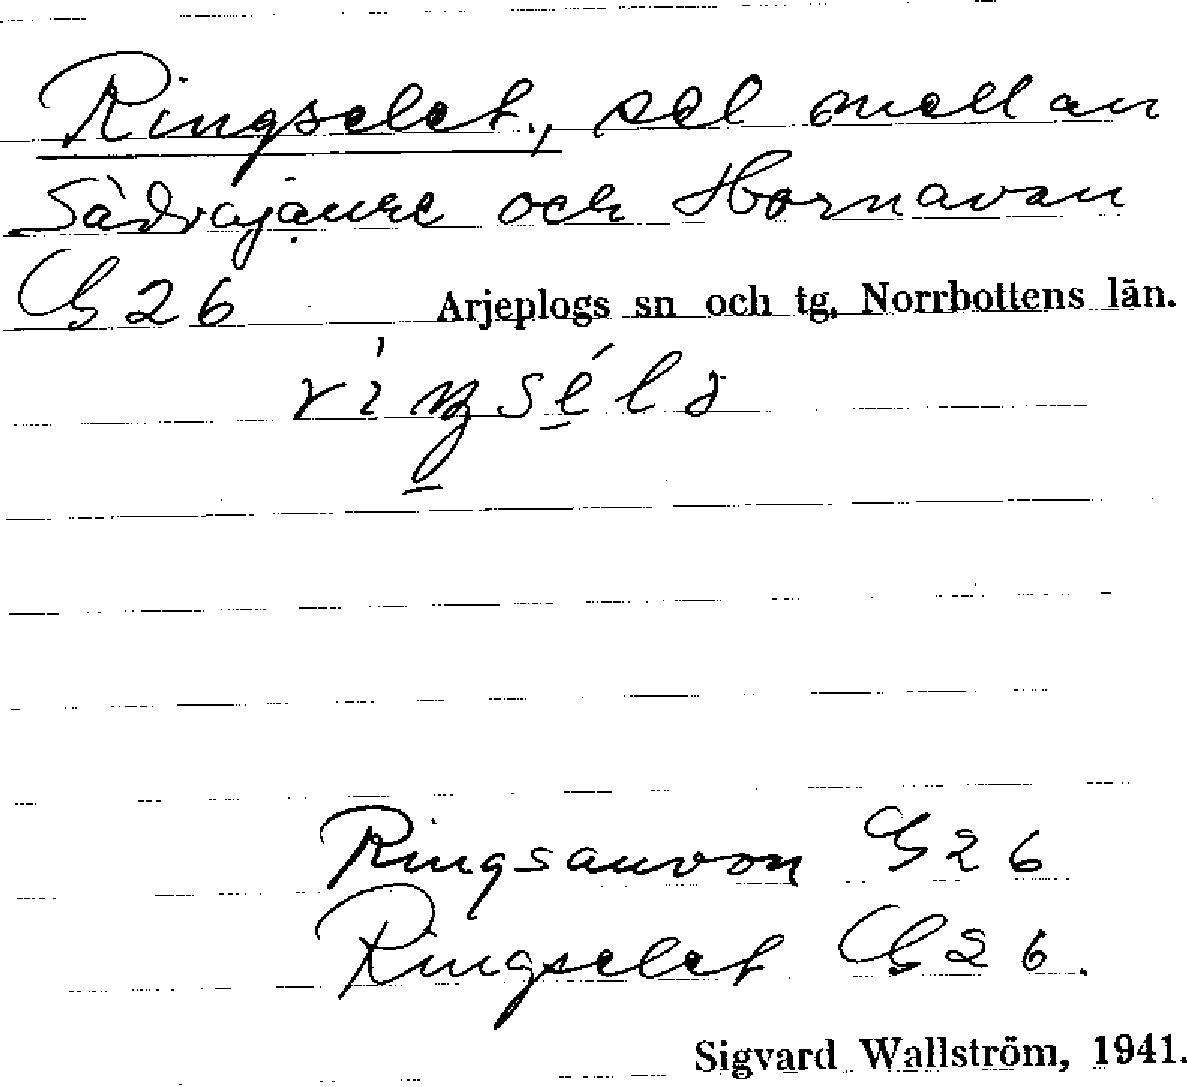 Ringselet, sel mellan
Sädvajaure och Hornavan
G 26 Arjeplogs sn och tg. Norrbottens län.
Ringsauvon G 26
Ringselet G 26.
Sigvard Wallström, 1941.